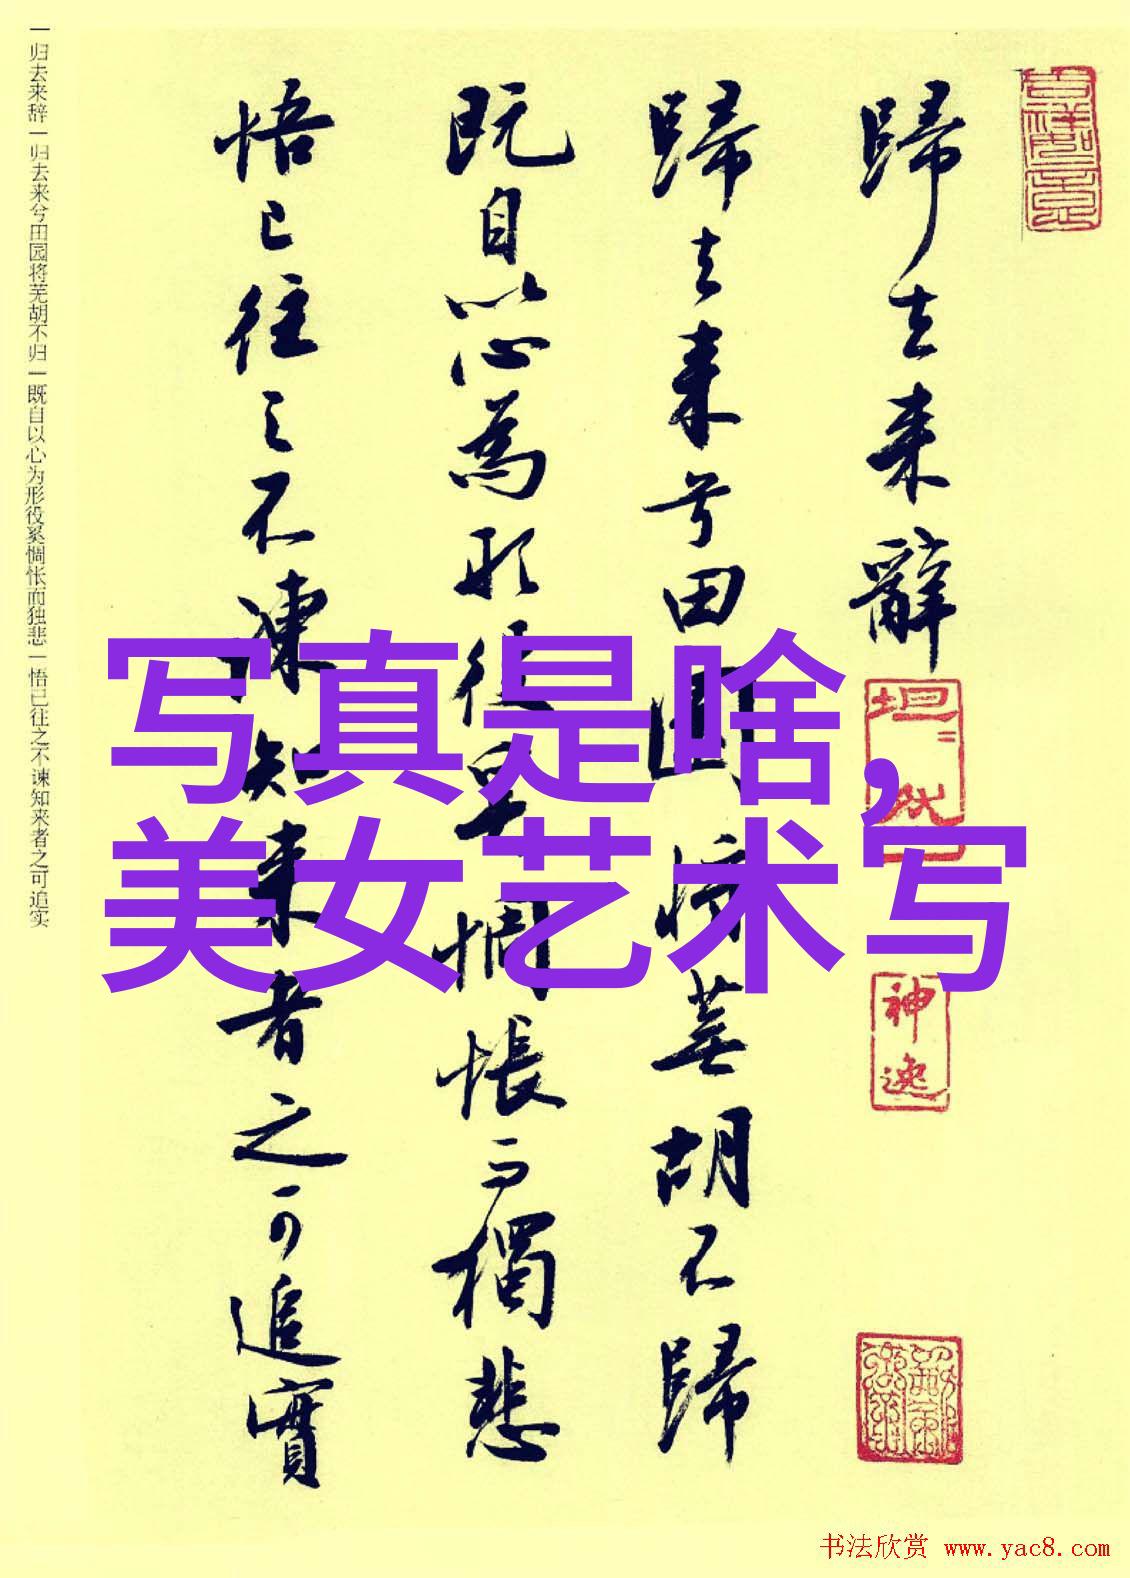 歸去来辭
歸去来兮田園將蕪胡不歸
既自以心為形役奚惆悵而獨悲
悟已往之不諫知来者之可追實
神逸
一归去来辞一归去来兮田园将芜胡不归一既自以心为形役奚惆怅而独悲一悟已往之不谏知来者之可追实
写真是啥，
美女艺术写
书法欣赏 www.yac8.com